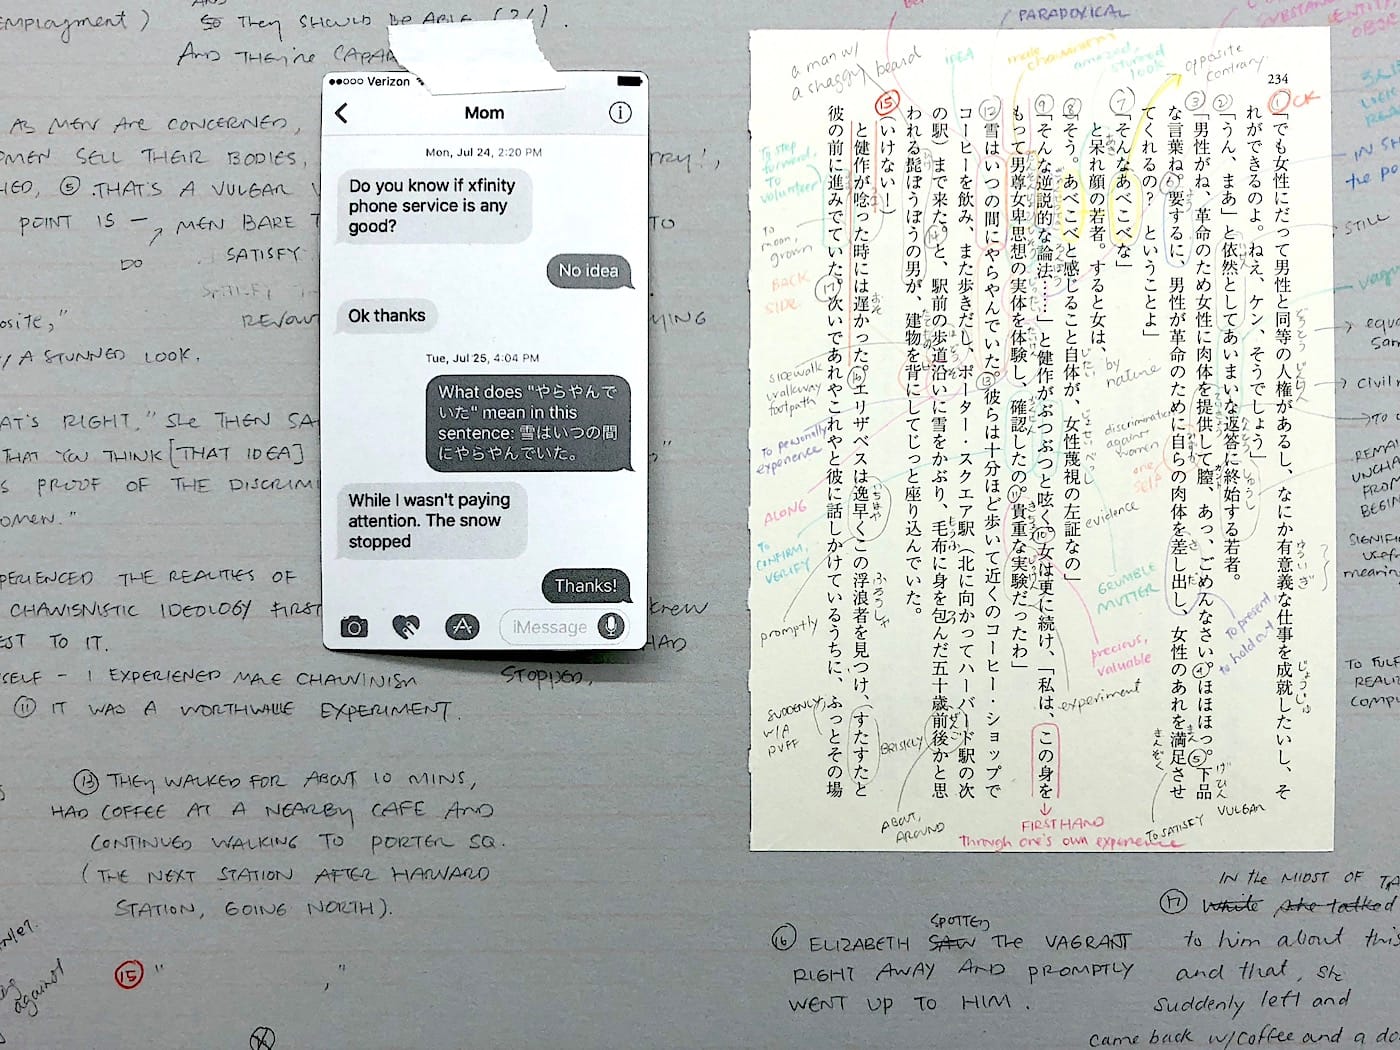 EMPLOYMENT)
SO THEY SHOULD BE ABLE (2/).
AND THEY'RE CAPA
AS MEN ARE CONCERNED,
OMEN SELL THEIR BODIES,
HED, ⑤ THAT'S A VULGAR
POINT IS — MEN BARE T
DO
SATISFY
REVOLUT
OSITE,"
W/ A STUNNED LOOK.
AT'S RIGHT," SHE THEN SA
THAT YOU THINK [THAT IDEA]
S PROOF OF THE DISCRIM
OMEN."
PERIENCED THE REALITIES OF
CHAUVISNISTIC IDEOLOGY FIRST
KNEW
EST TO IT.
HAD
SELF – I EXPERIENED MALE CHAUVINISM
STOPPED,
⑪ IT WAS A WORTHWHILE EXPERIMENT.
⑬ THEY WALKED FOR ABOUT 10 MINS,
HAD COFFEE AT A NEARBY CAFE AND
CONTINUED WALKING TO PORTER SQ.
(THE NEXT STATION AFTER HARVARD
STATION, GOING NORTH).
against
⑮ "          "
Verizon
Mom
Mon, Jul 24, 2:20 PM
Do you know if xfinity
phone service is any
good?
No idea
Ok thanks
Tue, Jul 25, 4:04 PM
What does "やらやんで
いた" mean in this
sentence: 雪はいつの間
にやらやんでいた。
While I wasn't paying
attention. The snow
stopped
Thanks!
iMessage
PARADOXICAL
a man w/
a shaggy beard
IDEA
male chauvinism
amazed,
stunned
look
opposite
contrary
234
① CK
「でも女性にだって男性と同等の人権があるし、なにか有意義な仕事を成就したいし、そ
れができるのよ。ねえ、ケン、そうでしょう」
②「うん、まあ」と依然としてあいまいな返答に終始する若者。
③「男性がね、革命のため女性に肉体を提供して膣、あっ、ごめんなさい。④ほほほっ。⑤下品
な言葉ね。⑥要するに、男性が革命のために自らの肉体を差し出し、女性のあれを満足させ
てくれるの？　ということよ」
⑦「そんなあべこべな」
と呆れ顔の若者。すると女は、
⑧「そう。あべこべと感じること自体が、女性蔑視の左証なの」
⑨「そんな逆説的な論法……」と健作がぶつぶつと呟く。⑩女は更に続け、「私は、この身を
もって男尊女卑思想の実体を体験し、確認したの。⑪貴重な実験だったわ」
⑫雪はいつの間にやらやんでいた。⑬彼らは十分ほど歩いて近くのコーヒー・ショップで
コーヒーを飲み、また歩きだし、ポーター・スクエア駅（北に向かってハーバード駅の次
の駅）まで来た。⑭と、駅前の歩道沿いに雪をかぶり、毛布に身を包んだ五十歳前後かと思
われる髭ぼうぼうの男が、建物を背にしてじっと座り込んでいた。
⑮（いけない！）
と健作が唸った時には遅かった。⑯エリザベスは逸早くこの浮浪者を見つけ、すたすたと
彼の前に進みでていた。⑰次いであれやこれやと彼に話しかけているうちに、ふっとその場
To step
forward,
to
volunteer
to
moan,
grown
BACK
SIDE
sidewalk
walkway
footpath
To personally
experience
ALONG
TO
CONFIRM,
VERIFY
promptly
SUDDENLY,
W/A
PUFF
BRISKLY
ABOUT,
AROUND
FIRSTHAND
Through one's own experience
by
nature
discrimination
against
women
one
SELF
evidence
GRUMBLE
MUTTER
precious,
valuable
experiment
To present
to hold out
TO SATISFY
VULGAR
IN SH
the po
STILL
vagu
equa
Sam
civil
REMAI
UNCHA
FROM
BEGIN
SIGNIFI
usef
meanin
TO FULF
REALIZ
COMPL
SPOTTED
⑯ ELIZABETH SAW THE VAGRANT
RIGHT AWAY AND PROMPTLY
WENT UP TO HIM.
IN the MIDST OF TA
⑰ While she talked
to him about this
and that, she
suddenly left and
came back w/coffee and a do